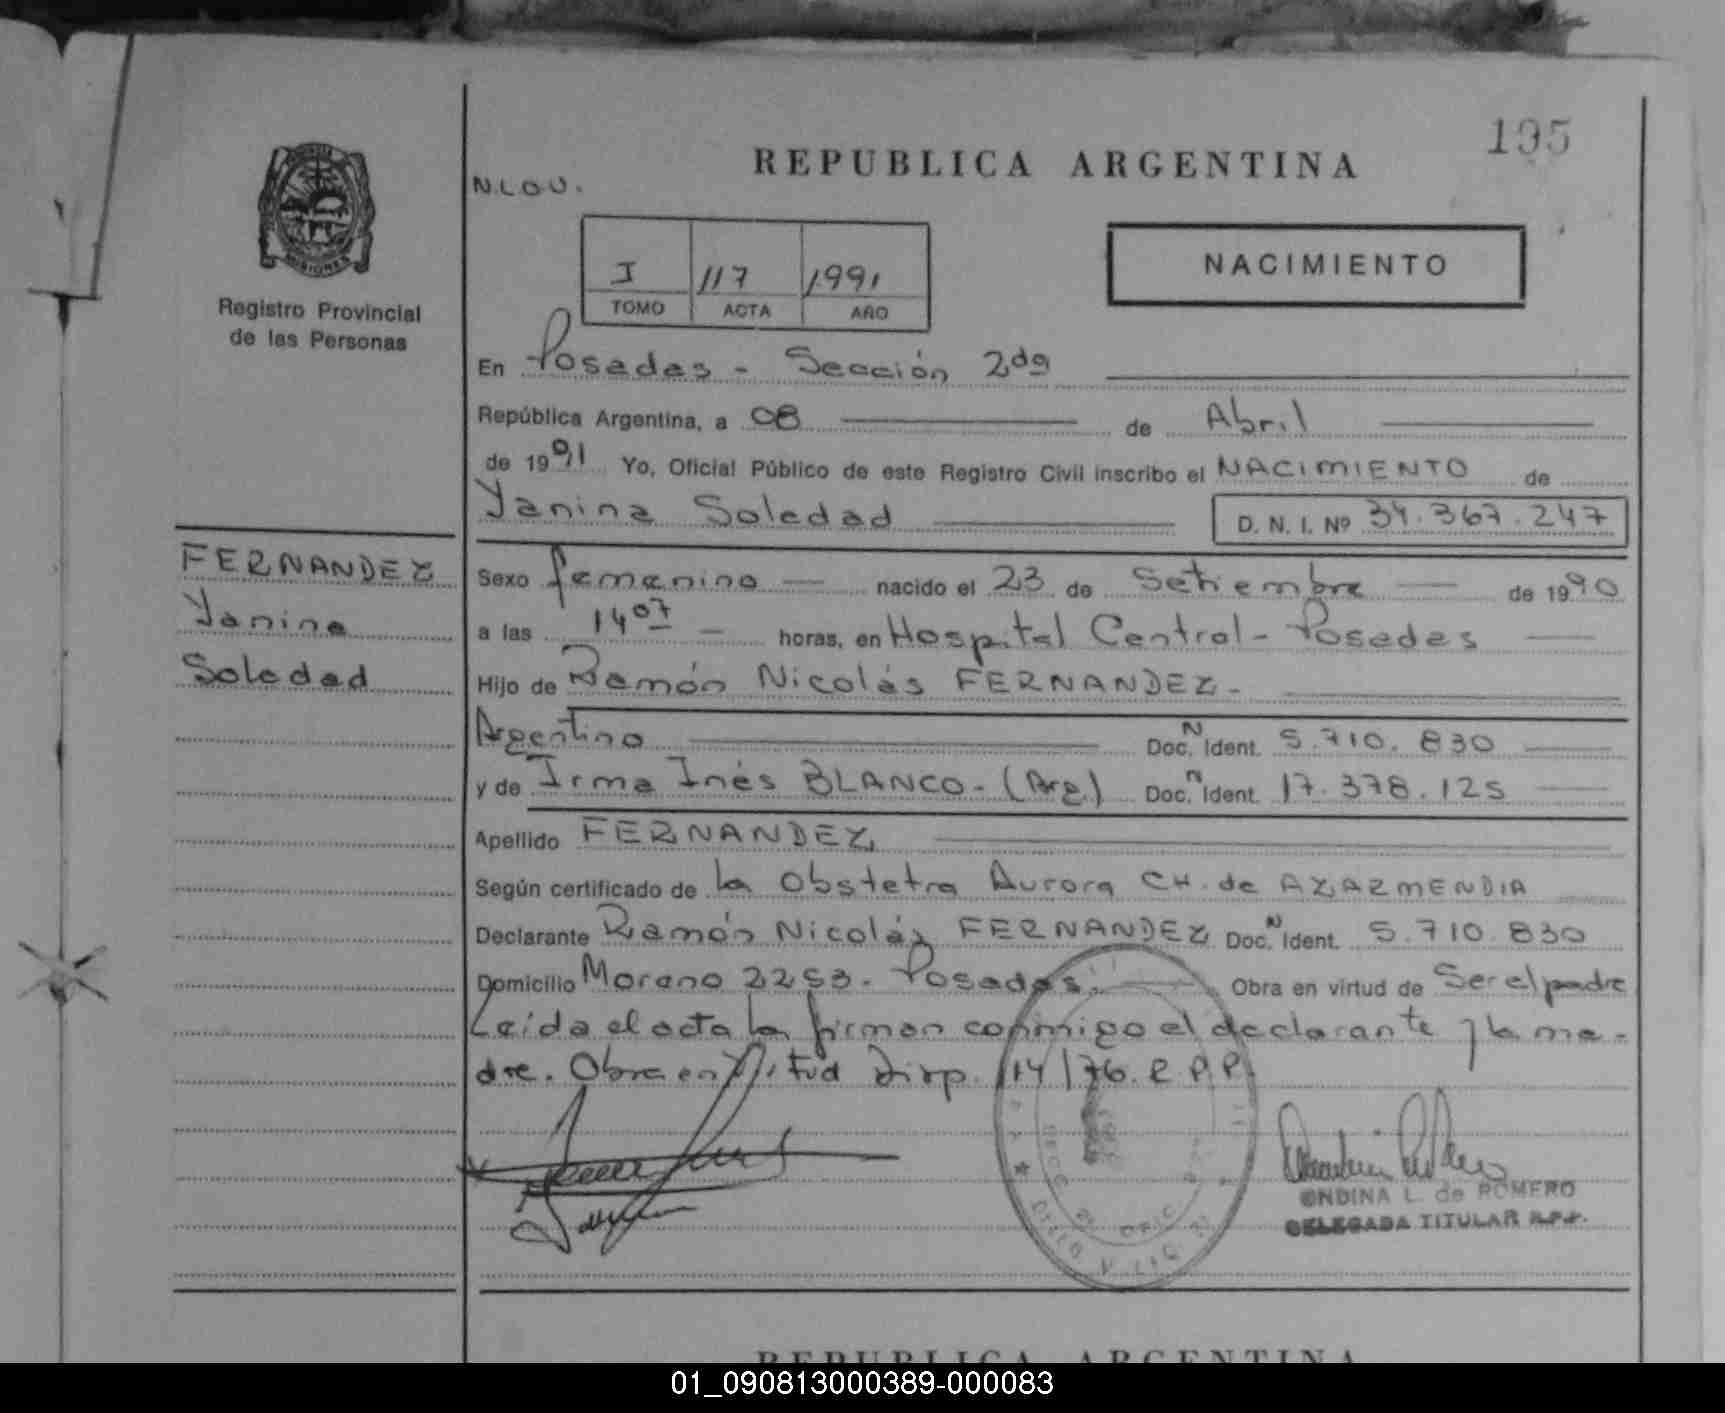 195
REPUBLICA ARGENTINA
N.L.O.U.
MISIONES
Registro Provincial
de las Personas
I 117 1991
TOMO ACTA AÑO
NACIMIENTO
En Posadas - Sección 2da
República Argentina, a 08 de Abril
de 1991 Yo, Oficial Público de este Registro Civil inscribo el NACIMIENTO de
Yanina Soledad D. N. I. Nº 34.367.247
FERNANDEZ
Yanina
Soledad
Sexo femenino nacido el 23 de Setiembre de 1990
a las 14 07 horas, en Hospital Central - Posadas
Hijo de Ramón Nicolás FERNANDEZ -
Argentino Doc. N Ident. 5.710.830
y de Irma Inés BLANCO - (Arg.) Doc. N Ident. 17.378.125
Apellido FERNANDEZ
Según certificado de la Obstetra Aurora CH. de AZARMENDIA
Declarante Ramón Nicolás FERNANDEZ Doc. N Ident. 5.710.830
Domicilio Moreno 2253 - Posadas. Obra en virtud de Ser el padre
Leida el acta la firman conmigo el declarante y la ma-
dre. Obra en virtud Disp. 114/76. R.P.P.
ONDINA L. de ROMERO
DELEGADA TITULAR R.P.P.
REPUBLICA ARGENTINA
01_090813000389-000083